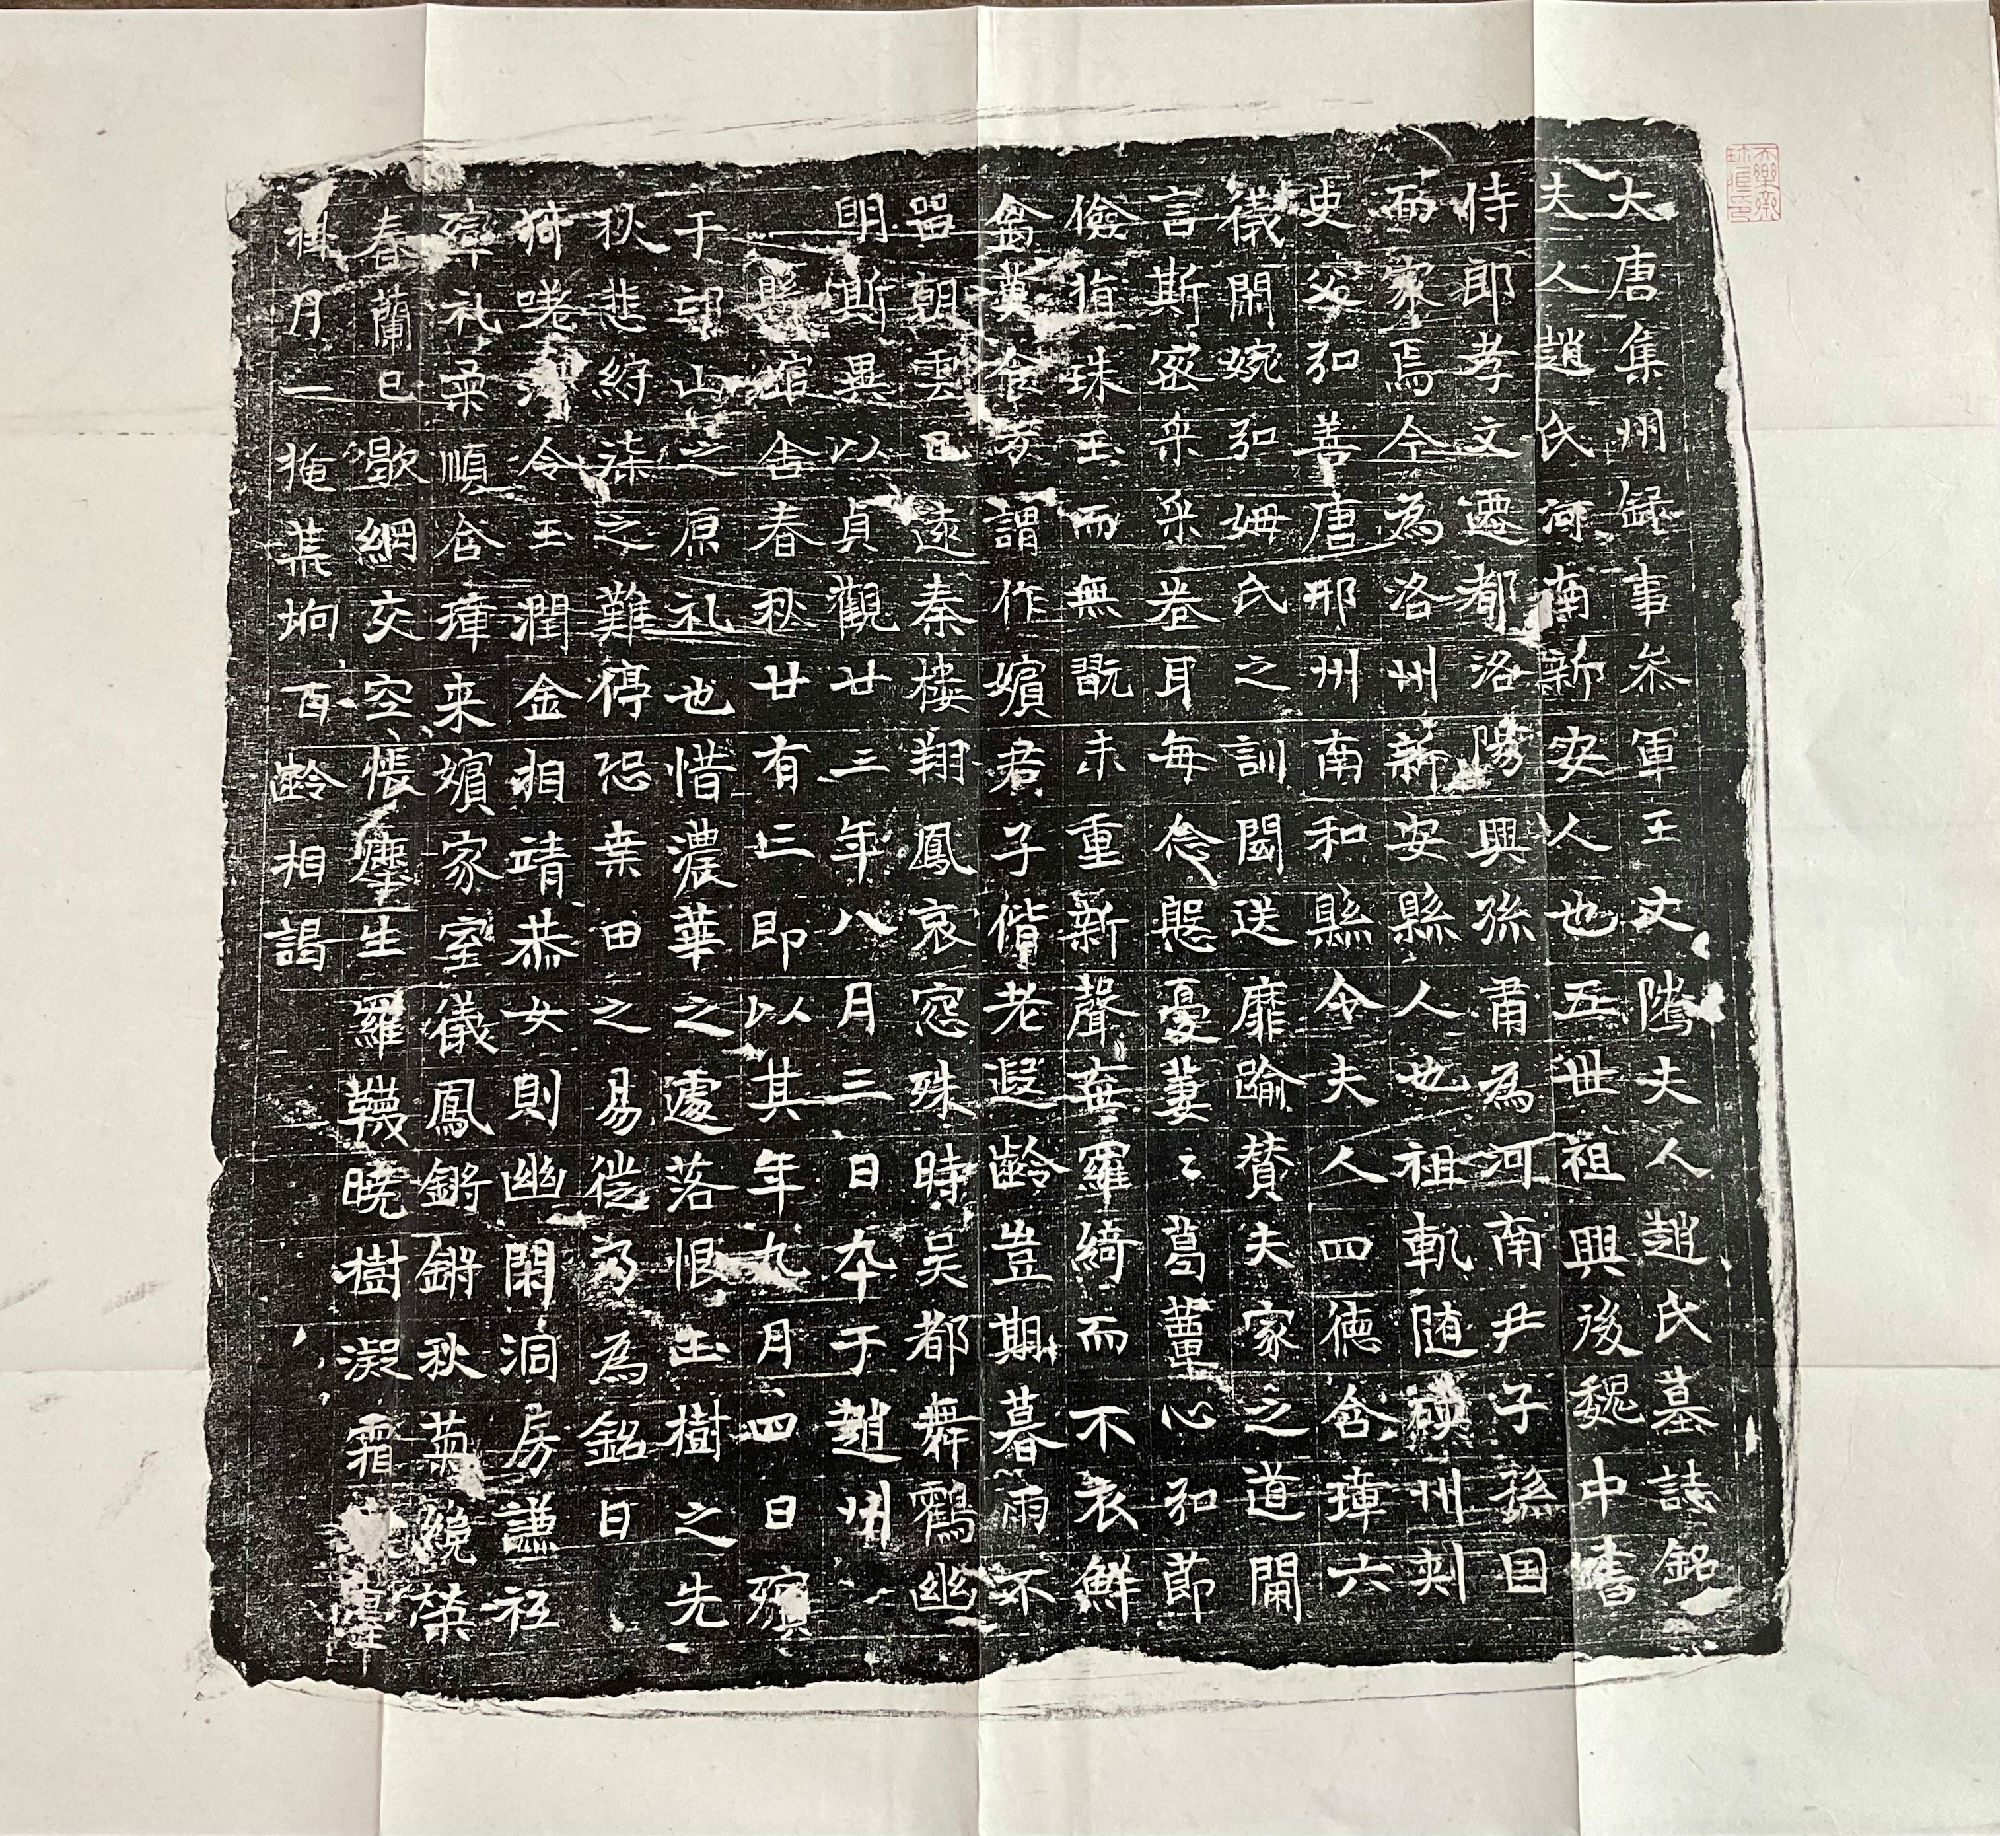 大唐集州錄事叅軍王丈隲夫人趙氏墓誌銘
夫人趙氏河南新安人也五世祖興後魏中書
侍郎孝文遷都洛陽興孫肅為河南尹子孫因
而家焉今為洛州新安縣人也祖軌随硤州刺
史父弘善唐邢州南和縣令夫人四德含璋六
儀閑婉弘姆氏之訓閾送靡踰賛夫家之道閫
言斯密采采卷耳每念慇憂萋〻葛蕈心和節
儉指珠玉而無翫未重新聲棄羅綺而不衣鮮
食方謂作嬪君子偕老遐齡豈期暮雨不
留朝雲已遠秦樓翔鳳哀窓殊時吴都舞鶴幽
明斯異以貞觀廿三年八月三日卒于趙州
縣舘舍春秋廿有三即以其年九月四日殯
于邙山之原礼也惜濃華之遽落恨玉樹之先
秋悲紵漆之難停恐桒田之易従乃為銘曰
猗嗟令玉潤金相靖恭女則幽閑洞房謙
礼柔順含璋来嬪家室儀鳳鏘鏘秋菊繞榮
春蘭已歇網交空帳塵生羅韈曉樹凝霜
月一掩荒坰百齡相謁